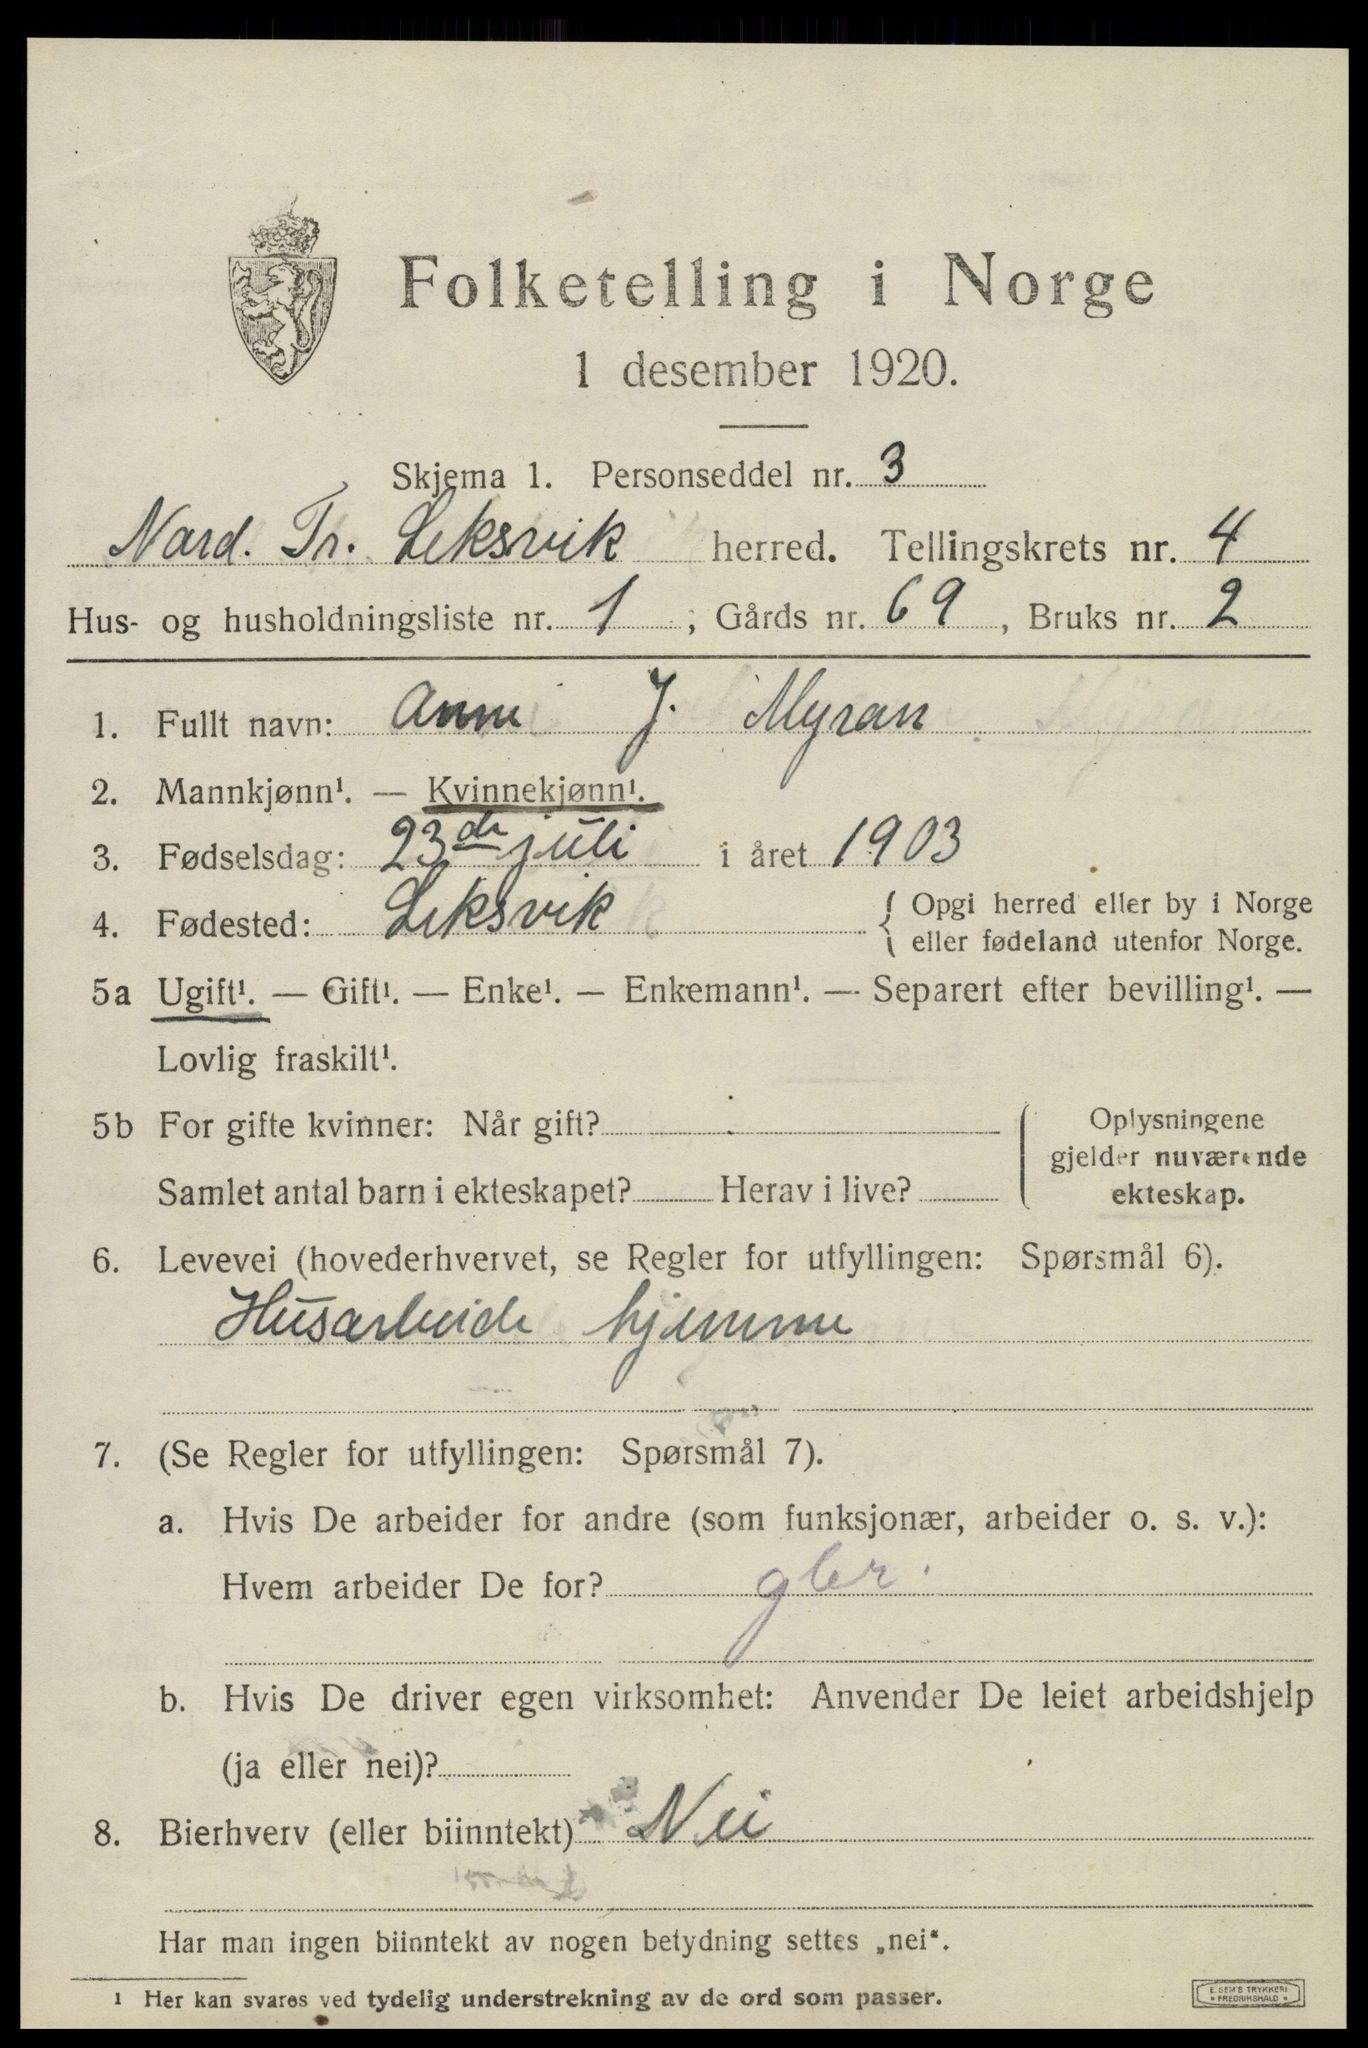 Folketelling i Norge
1 desember 1920.
Skjema 1. Personseddel nr. 3
Nord. Tr. Leksvik herred. Tellingskrets nr. 4
Hus- og husholdningsliste nr. 1 ; Gårds nr. 69 , Bruks nr. 2
1. Fullt navn: Anne J. Myran
2. Mannkjønn¹. — Kvinnekjønn¹.
3. Fødselsdag: 23de juli i året 1903
4. Fødested: Leksvik { Opgi herred eller by i Norge
eller fødeland utenfor Norge.
5a Ugift¹. — Gift¹. — Enke¹. — Enkemann¹. — Separert efter bevilling¹. —
Lovlig fraskilt¹.
5b For gifte kvinner: Når gift?
Samlet antal barn i ekteskapet? Herav i live?
Oplysningene
gjelder nuværende
ekteskap.
6. Levevei (hovederhvervet, se Regler for utfyllingen: Spørsmål 6).
Husarbeide hjemme
7. (Se Regler for utfyllingen: Spørsmål 7).
a. Hvis De arbeider for andre (som funksjonær, arbeider o. s. v.):
Hvem arbeider De for? gbr.
b. Hvis De driver egen virksomhet: Anvender De leiet arbeidshjelp
(ja eller nei)?
8. Bierhverv (eller biinntekt) Nei
Har man ingen biinntekt av nogen betydning settes „nei“.
¹ Her kan svares ved tydelig understrekning av de ord som passer.
E. SEM'S TRYKKERI
FREDRIKSHALD